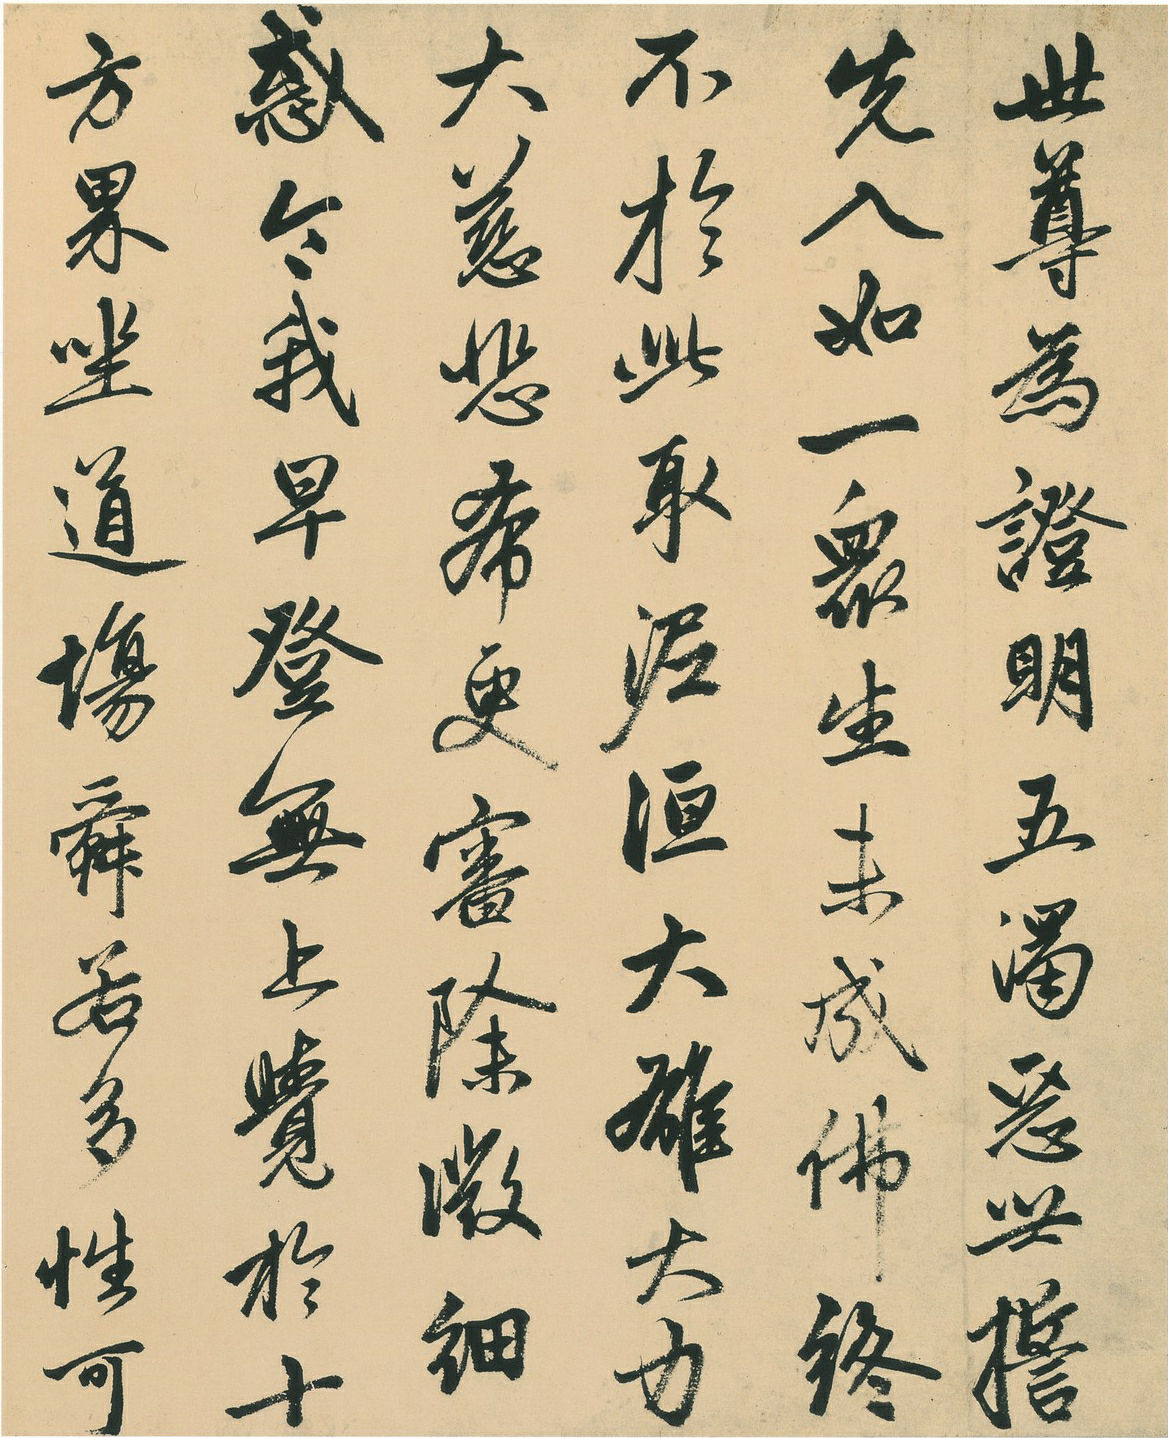 世尊為證明五濁惡世誓
先入如一衆生未成佛終
不於此取泥洹大雄大力
大慈悲希更審除微細
惑令我早登無上覺於十
方界坐道場舜若多性可